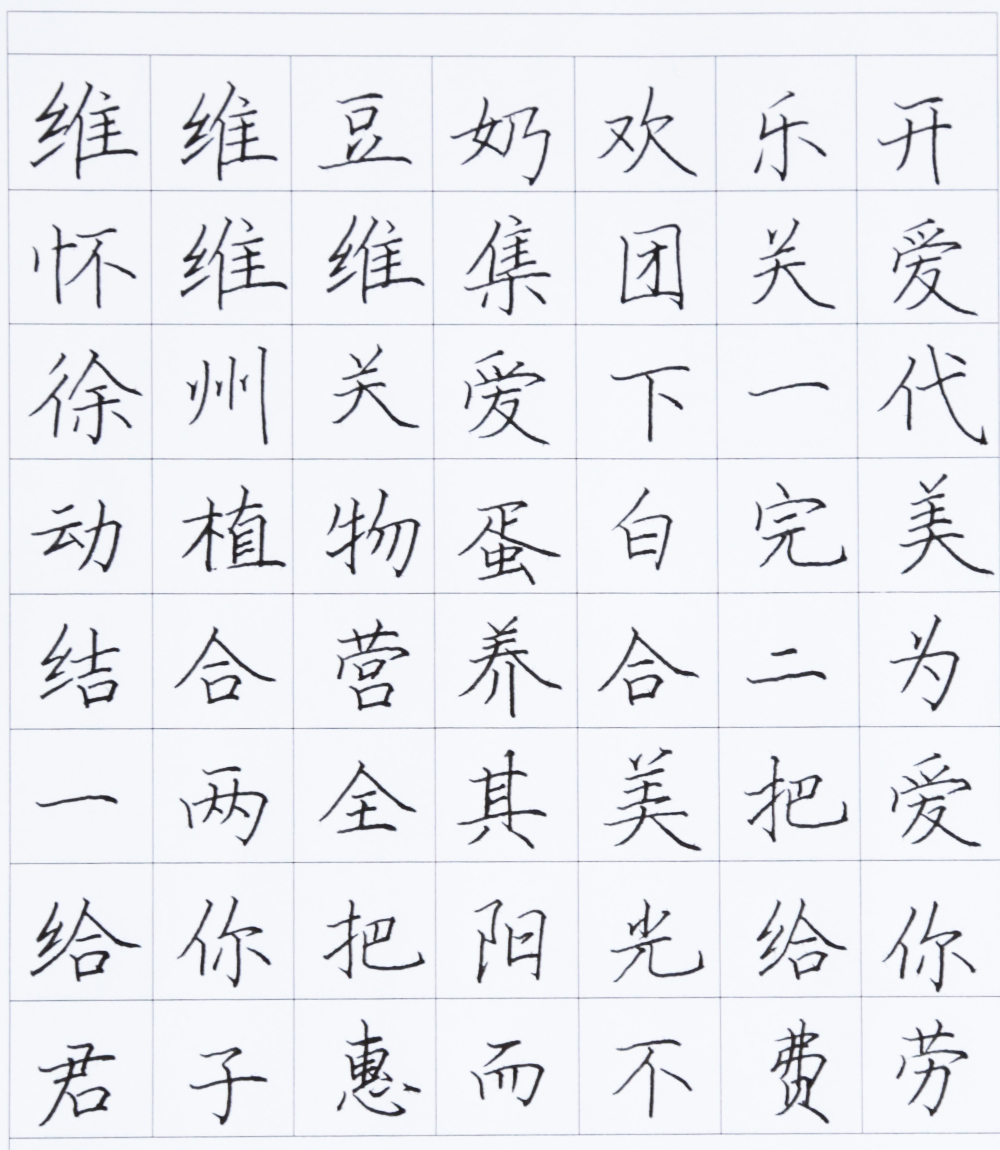 维维豆奶欢乐开
怀维维集团关爱
徐州关爱下一代
动植物蛋白完美
结合营养合二为
一两全其美把爱
给你把阳光给你
君子惠而不费劳